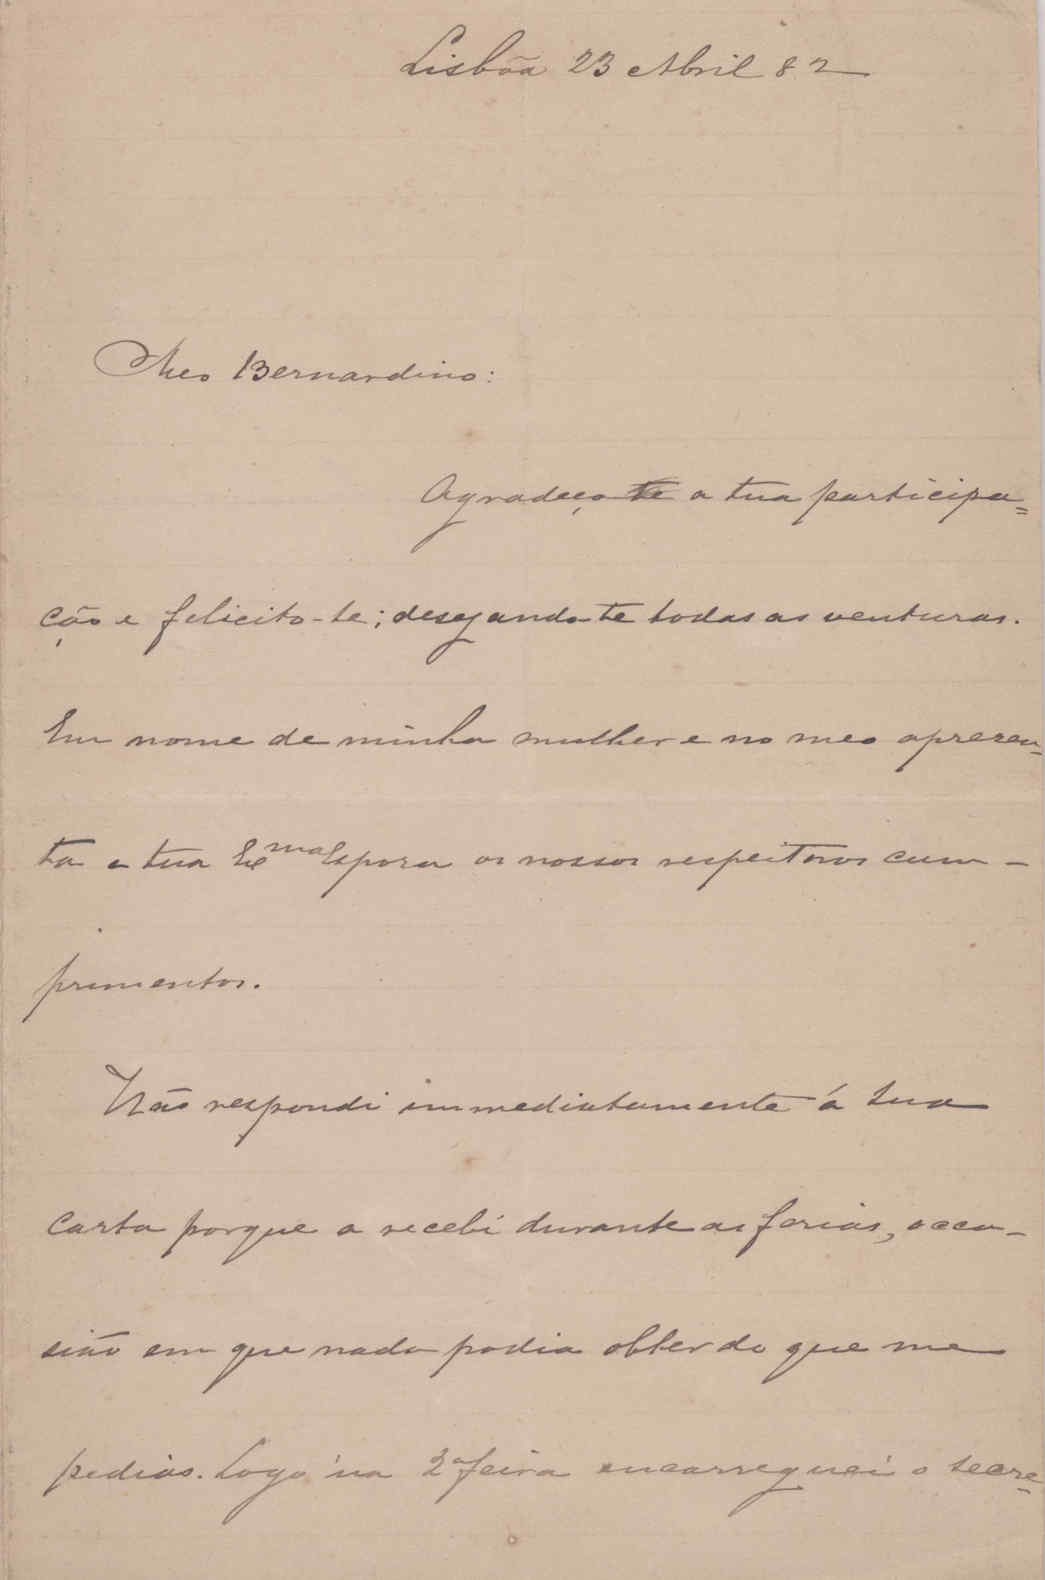 Lisbôa 23 Abril 82
Meo Bernardino:
Agradeço te a tua participa=
ção e felicito-te; desejando-te todas as venturas.
Em nome de minha mulher e no meo apresen=
ta a tua Exma Esposa os nossos respeitosos cum-
primentos.
Não respondi immediatamente á tua
carta porque a recebi durante as ferias, occa-
sião em que nada podia obter do que me
pedias. Logo na 2ª feira encarreguei o secre=